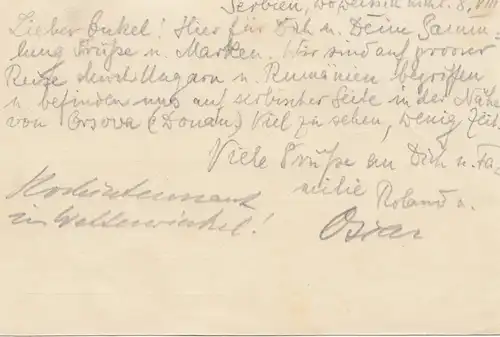 Serbien, 8. VIII
Lieber Onkel! Hier für Dich u. Deine Samm-
lung Grüße u. Marken. Wir sind auf grosser
Reise durch Ungarn u. Rumänien begriffen
u. befinden uns auf serbischer Seite in der Nähe
von Orsova (Donau) Viel zu sehen, wenig Zeit.
Viele Grüße an Dich u. Fa-
milie Roland u.
Oscar
im Wetterwinkel!